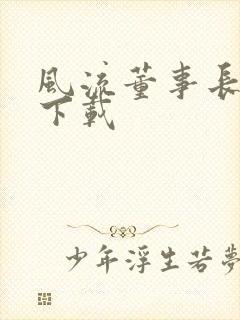 風流董事長
下載
少年浮生若夢